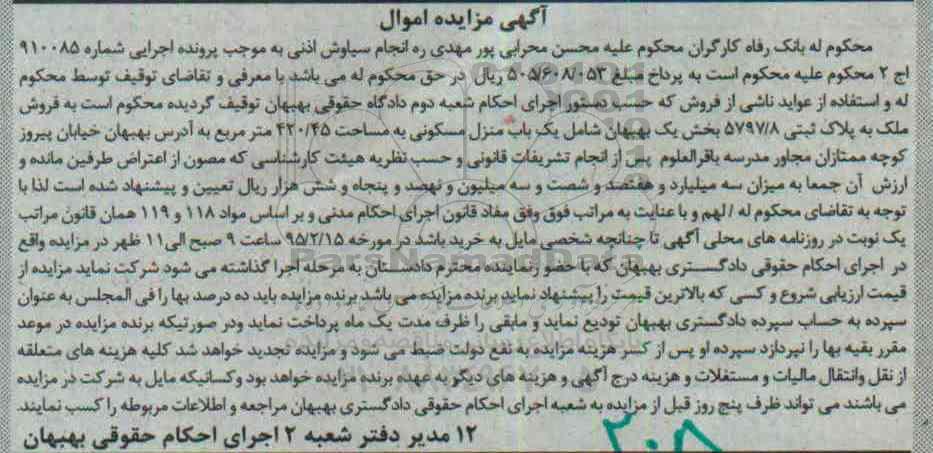 آگهی مزایده اموال
محکوم له بانک رفاه کارگران محکوم علیه محسن محرابی پور مهدی ره انجام سیاوش اذنی به موجب پرونده اجرایی شماره ۹۱۰۰۸۵
اج ۲ محکوم علیه محکوم است به پرداخ مبلغ ۵۰۵/۶۰۸/۰۵۳ ریال در حق محکوم له می باشد با معرفی و تقاضای توقیف توسط محکوم
له و استفاده از عواید ناشی از فروش که حسب دستور اجرای احکام شعبه دوم دادگاه حقوقی بهبهان توقیف گردیده محکوم است به فروش
ملک به پلاک ثبتی ۵۷۹۷/۸ بخش یک بهبهان شامل یک باب منزل مسکونی به مساحت ۴۲۰/۴۵ متر مربع به آدرس بهبهان خیابان پیروز
کوچه ممتازان مجاور مدرسه باقرالعلوم پس از انجام تشریفات قانونی و حسب نظریه هیئت کارشناسی که مصون از اعتراض طرفین مانده و
ارزش آن جمعا به میزان سه میلیارد و هفتصد و شصت و سه میلیون و نهصد و پنجاه و شش هزار ریال تعیین و پیشنهاد شده است لذا با
توجه به تقاضای محکوم له / لهم و با عنایت به مراتب فوق وفق مفاد قانون اجرای احکام مدنی و بر اساس مواد ۱۱۸ و ۱۱۹ همان قانون مراتب
یک نوبت در روزنامه های محلی آگهی تا چنانچه شخصی مایل به خرید باشد در مورخه ۹۵/۲/۱۵ ساعت ۹ صبح الی ۱۱ ظهر در مزایده واقع
در اجرای احکام حقوقی دادگستری بهبهان که با حضور نماینده محترم دادستان به مرحله اجرا گذاشته می شود شرکت نماید مزایده از
قیمت ارزیابی شروع و کسی که بالاترین قیمت را پیشنهاد نماید برنده مزایده می باشد برنده مزایده باید ده درصد بها را فی المجلس به عنوان
سپرده به حساب سپرده دادگستری بهبهان تودیع نماید و مابقی را ظرف مدت یک ماه پرداخت نماید ودر صورتیکه برنده مزایده در موعد
مقرر بقیه بها را نپردازد سپرده او پس از کسر هزینه مزایده به نفع دولت ضبط می شود و مزایده تجدید خواهد شد کلیه هزینه های متعلقه
از نقل وانتقال مالیات و مستغلات و هزینه درج آگهی و هزینه های دیگر به عهده برنده مزایده خواهد بود وکسانیکه مایل به شرکت در مزایده
می باشند می تواند ظرف پنج روز قبل از مزایده به شعبه اجرای احکام حقوقی دادگستری بهبهان مراجعه و اطلاعات مربوطه را کسب نمایند.
۱۲ مدیر دفتر شعبه ۲ اجرای احکام حقوقی بهبهان
۳۰۸
ParsNamadData